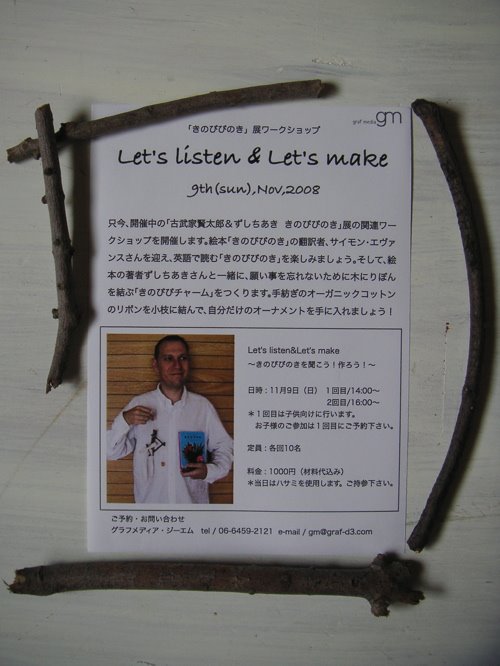 「きのぴぴのき」展ワークショップ
graf media gm
Let's listen & Let's make
9th(sun),Nov,2008
只今、開催中の「古武家賢太郎&ずしちあき きのぴぴのき」展の関連ワー
クショップを開催します。絵本「きのぴぴのき」の翻訳者、サイモン・エヴァ
ンスさんを迎え、英語で読む「きのぴぴのき」を楽しみましょう。そして、絵
本の著者ずしちあきさんと一緒に、願い事を忘れないために木にりぼん
を結ぶ「きのぴぴチャーム」をつくります。手紡ぎのオーガニックコットン
のリボンを小枝に結んで、自分だけのオーナメントを手に入れましょう!
Let's listen&Let's make
〜きのぴぴのきを聞こう!作ろう!〜
日時:11月9日(日) 1回目/14:00〜
2回目/16:00〜
*1回目は子供向けに行います。
お子様のご参加は1回目にご予約下さい。
定員:各回10名
料金:1000円(材料代込み)
*当日はハサミを使用します。ご持参下さい。
ご予約・お問い合わせ
グラフメディア・ジーエム tel / 06-6459-2121 e-mail / gm@graf-d3.com